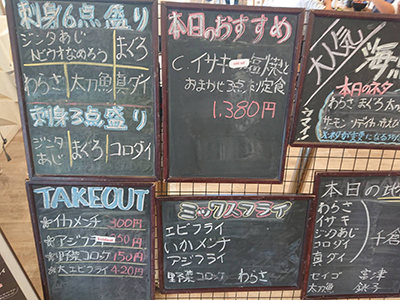 刺身6点盛り
ジンタあじ
まぐろ
わらさ
太刀魚
真ダイ
刺身3点盛り
ジンタあじ
まぐろ
コロダイ
本日のおすすめ
C イサキ 塩焼と
おまかせ3点刺定食
1,380円
大人気!
海
本日のネタ
わらさ まぐろ 太
サーモン
TAKEOUT
イカメンチ 300円
アジフライ 50円
野菜コロッケ 150円
大エビフライ 420円
ミックスフライ
エビフライ
いかメンチ
アジフライ
野菜コロッケ
わらさ
本日の地
わらさ
イサキ
ジンタあじ
コロダイ
真ダイ
千倉
セイゴ 富津
太刀魚 銚子